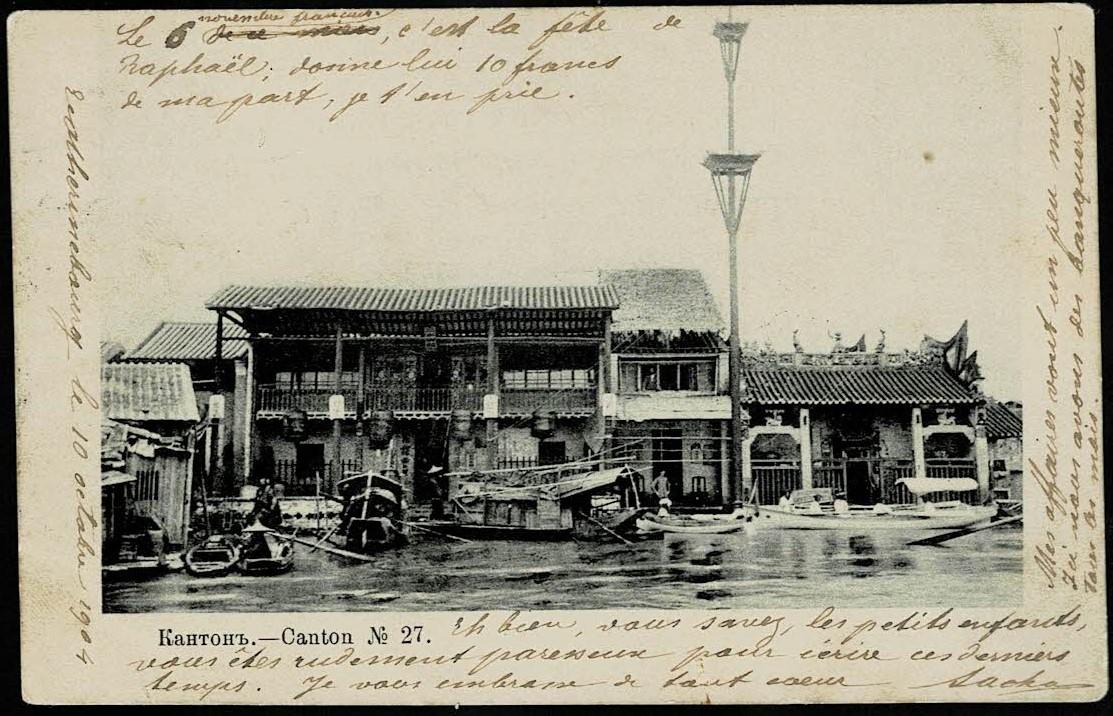 novembre français.
Le 6 de ce mois, c'est la fête de
Raphaël; donne lui 10 francs
de ma part, je t'en prie.
Ecatherinebourg le 10 octobre 1904
Mes affaires vont un peu mieux.
Ici nous avons des banqueroutes
tous les mois.
Кантонъ.—Canton № 27.
Eh bien, vous savez, les petits enfants,
vous êtes rudement paresseux pour écrire ces derniers
temps. Je vous embrasse de tout coeur Sacha